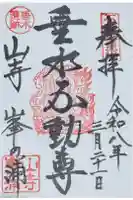 奉拝
令和八年
三月二十一日
垂水不動尊
山寺
峯の浦